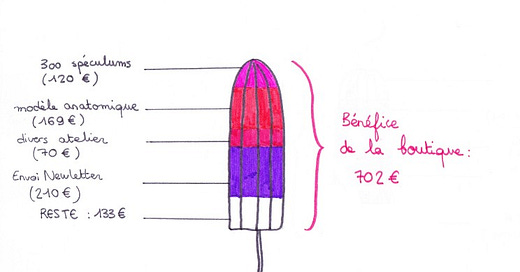 300 spéculums
(120 €)
modèle anatomique
(169€)
divers atelier
(70 €)
Envoi Newletter
(210€)
RESTE : 133€
Bénéfice
de la boutique :
702 €